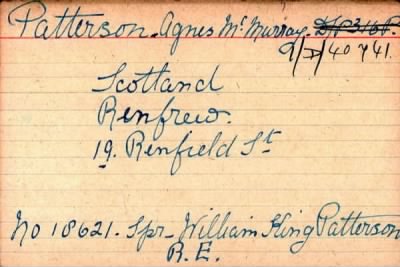 Patterson. Agnes Mc Murray. D/P316P.
9/D/40741.
Scotland
Renfrew.
19. Renfield St
No 18621. Spr. William King Patterson
R.E.